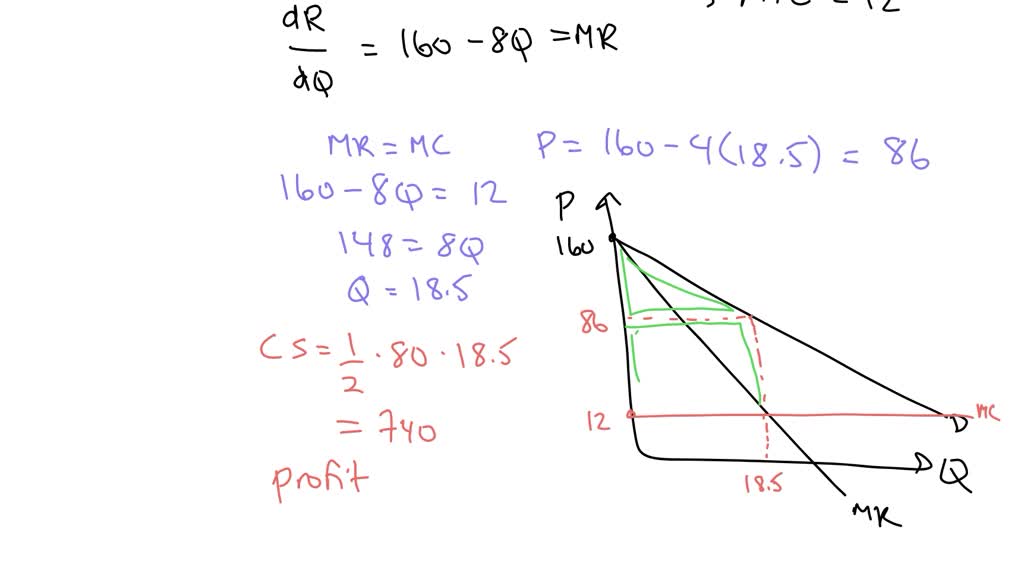 dR/dQ = 160 - 8Q = MR
MR = MC
160 - 8Q = 12
148 = 8Q
Q = 18.5
CS = 1/2 · 80 · 18.5
= 740
profit
P = 160 - 4(18.5) = 86
P
160
86
12
MC
D
Q
18.5
MR